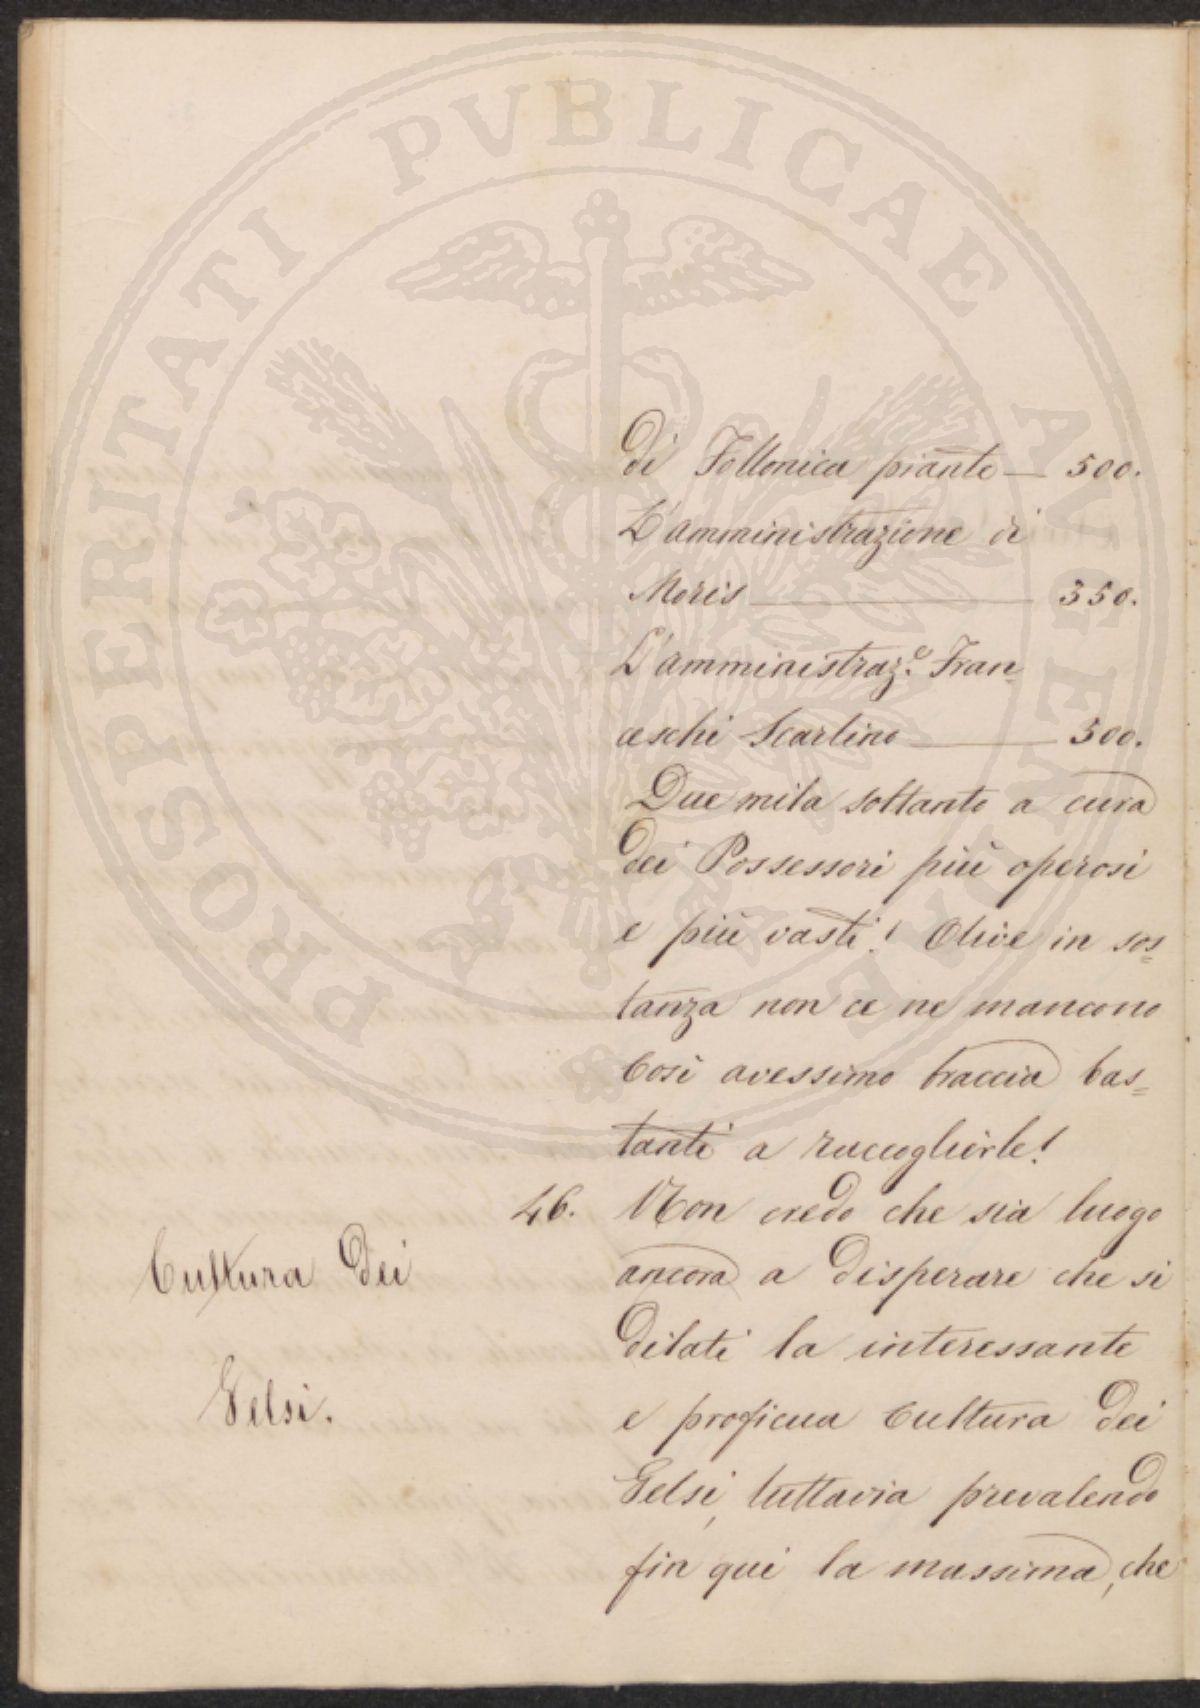 PROSPERITATI PVBLICAE AVGENDAE
di Follonica piante — 500.
L'amministrazione di
Moris — 350.
L'amministraz.e Fran=
ceschi Scarlino — 500.
Due mila soltanto a cura
dei Possessori più operosi
e più vasti! Olive in sos=
tanza non ce ne mancono
Così avessimo braccia bas=
tanti a raccoglierle!
46. Non credo che sia luogo
Cultura dei
Gelsi.
ancora a disperare che si
dilati la interessante
e proficua cultura dei
Gelsi, tuttavia prevalendo
fin qui la massima, che